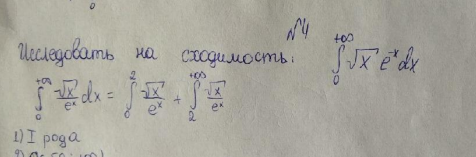 №4
Исследовать на сходимость: ∫₀^{+∞} √x e^{-x} dx
∫₀^{+∞} √x/eˣ dx = ∫₀² √x/eˣ + ∫₂^{+∞} √x/eˣ
1) I рода